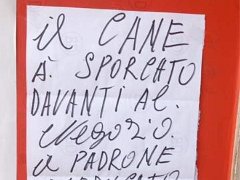 il CANE
À SPORCATO
DAVANTI AL.
Negozio.
a PADRONE